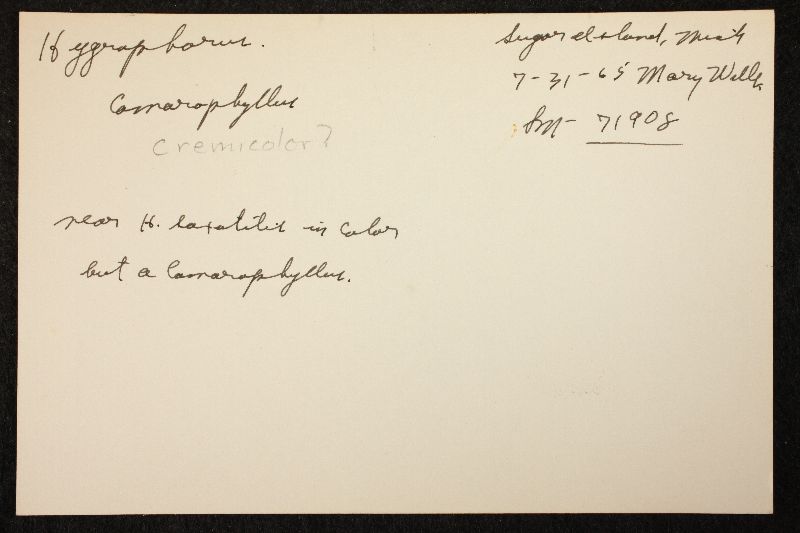 Hygrophorus.
Camarophyllus
cremicolor?
Sugar Island, Mich
7-31-65 Mary Wells
Sm- 71908
near H. laetus in color
but a Camarophyllus.